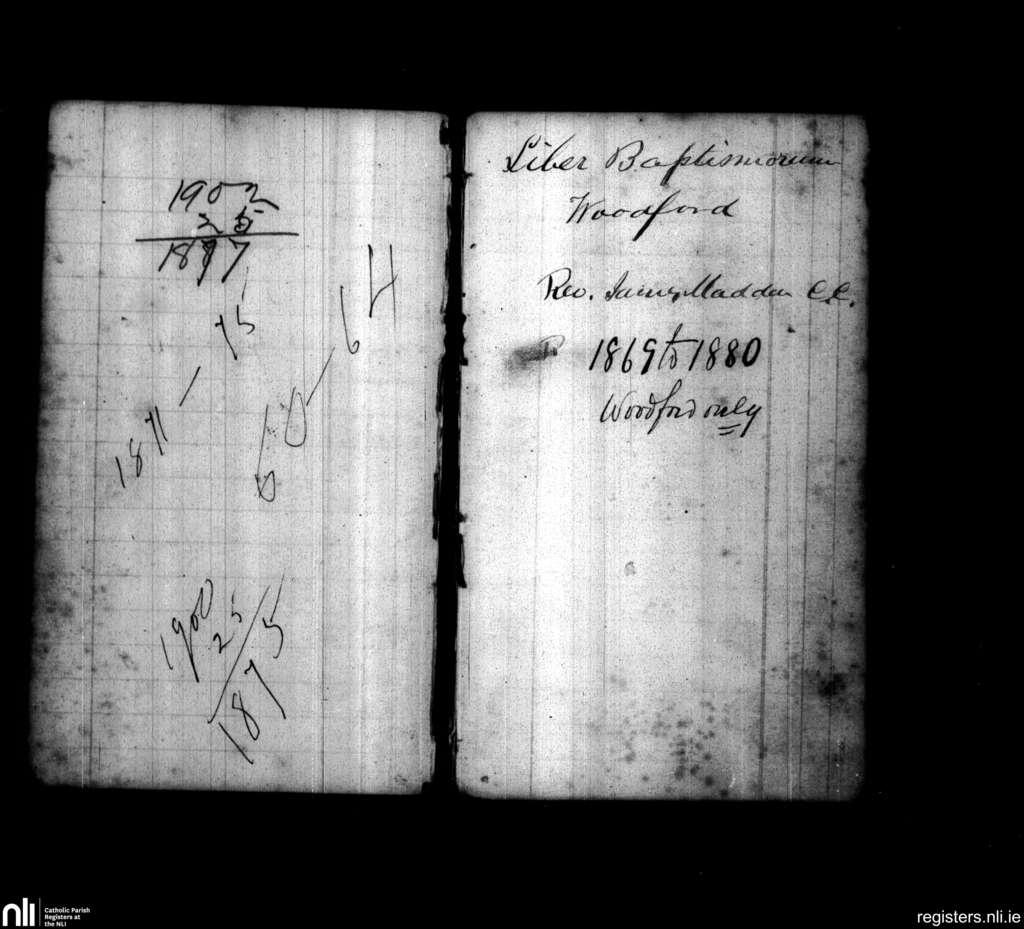 1902
25
1877
75
1871 -
60 - 64
1900
25
1875
Liber Baptismorum
Woodford
Rev. James Madden C.C.
1869 to 1880
Woodford only
nli
Catholic Parish
Registers at
the NLI
registers.nli.ie